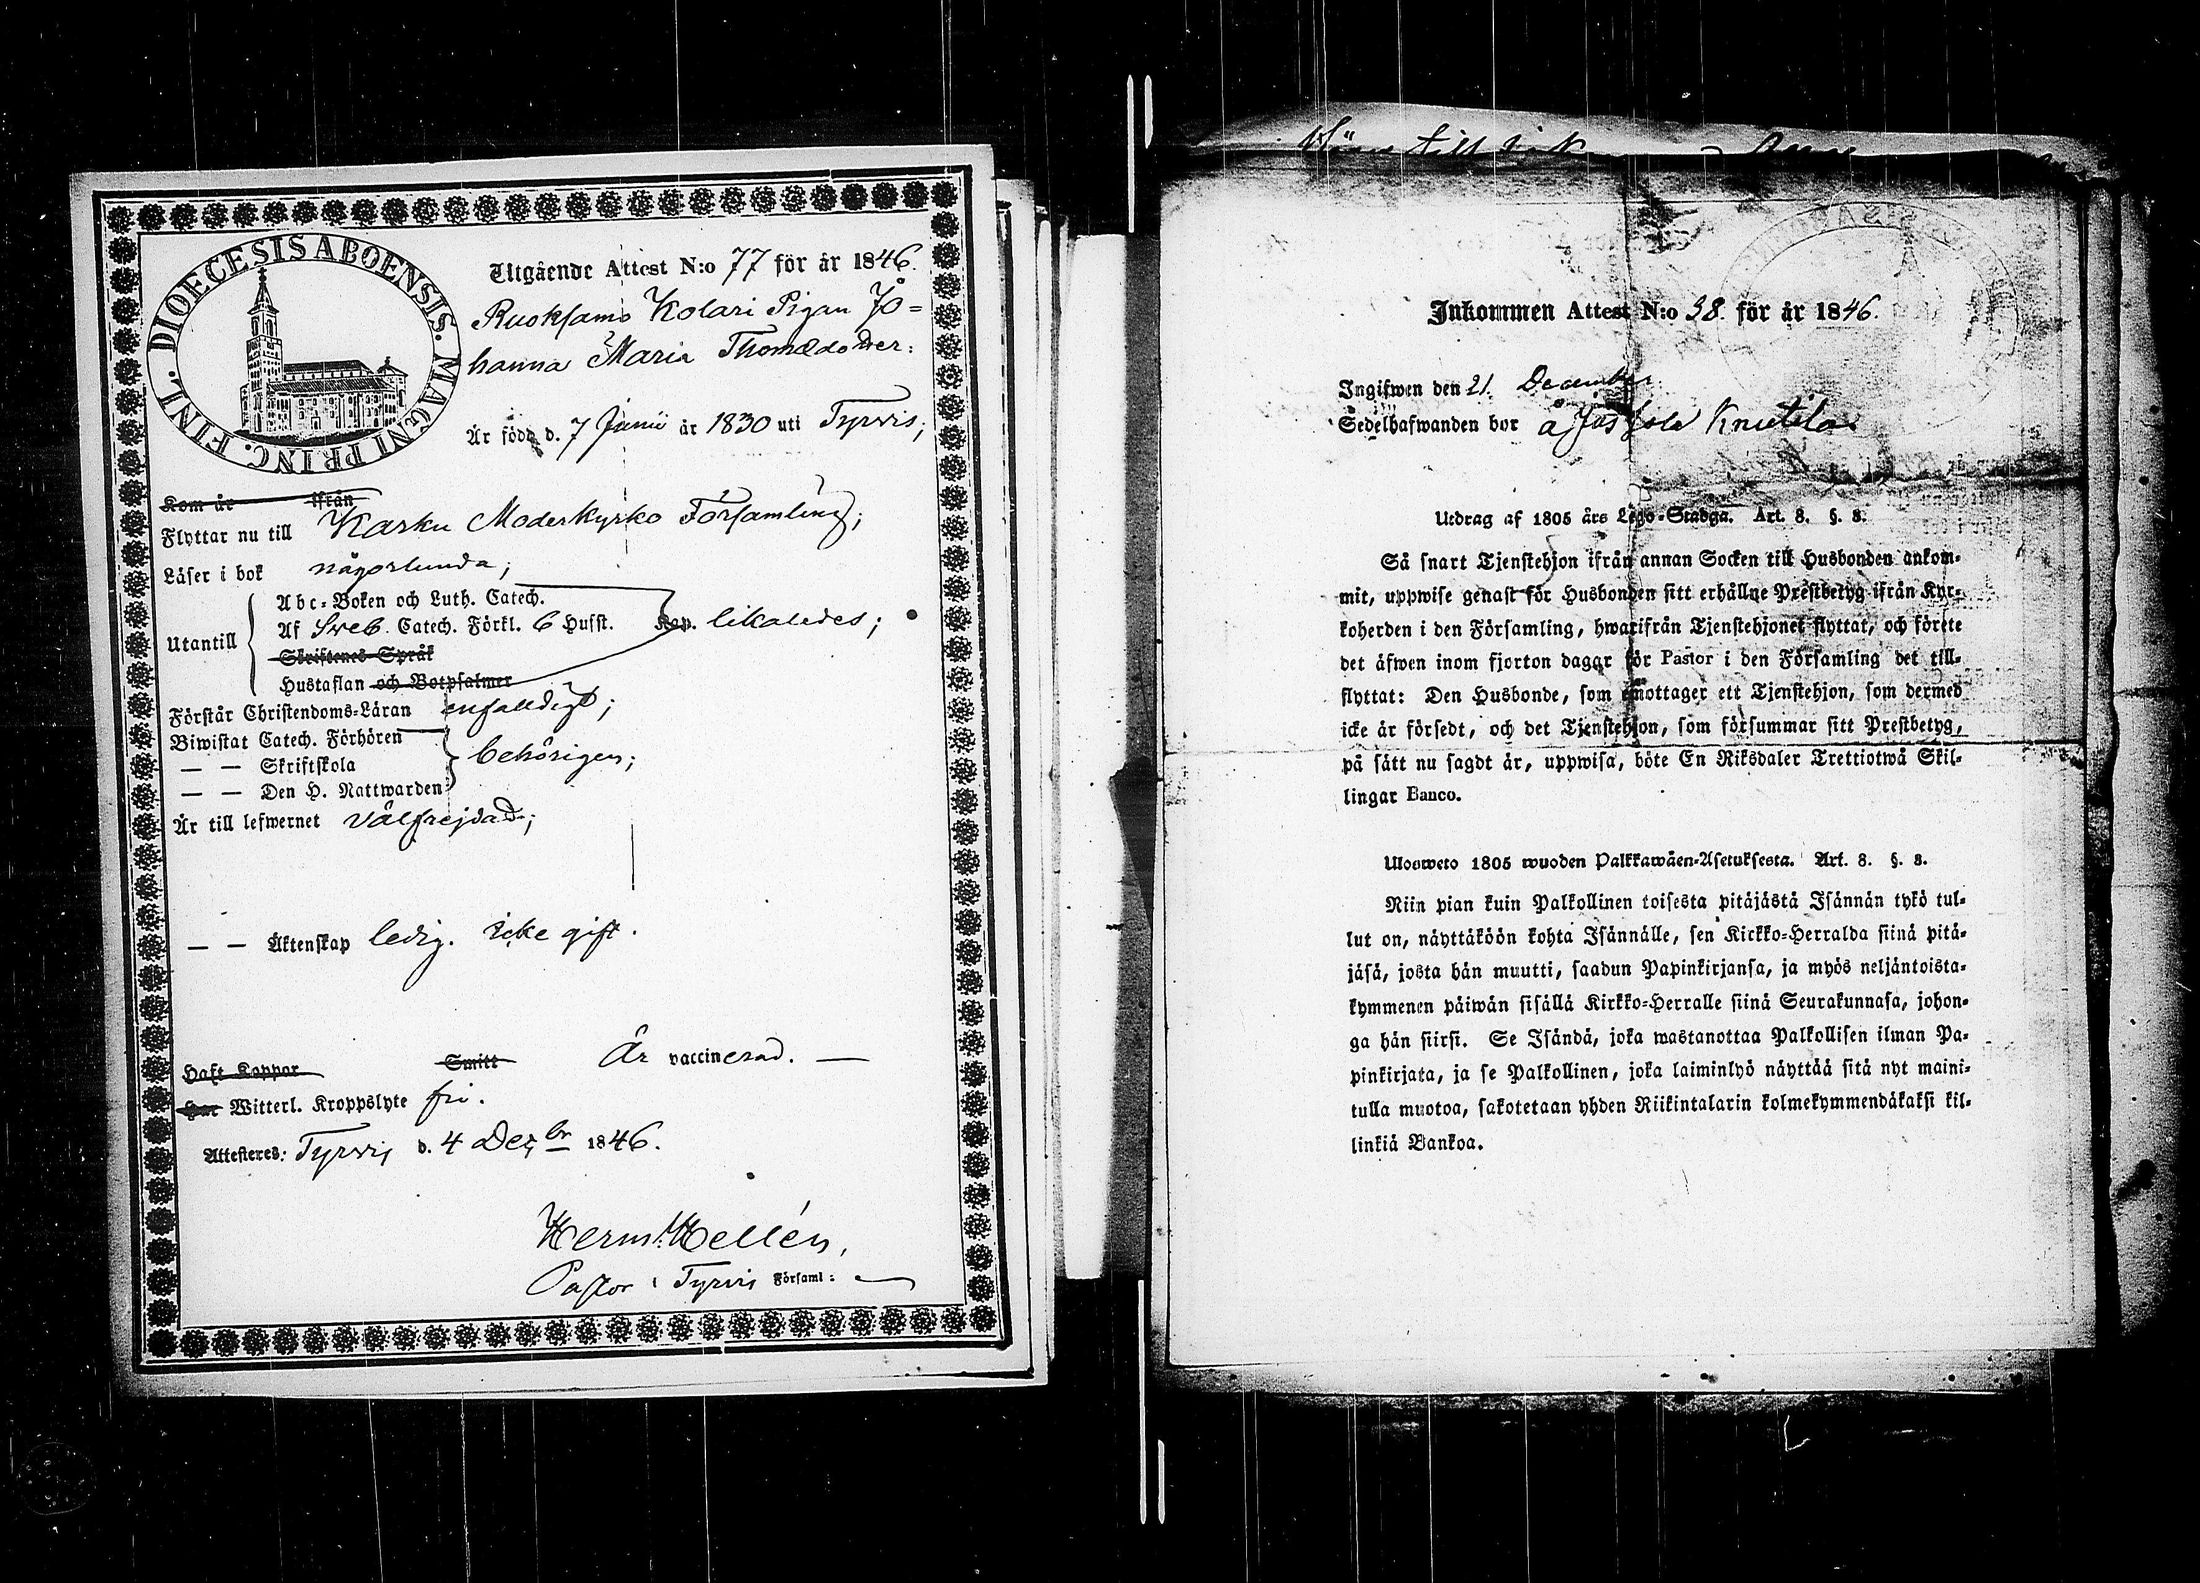 DIOECESIS ABOENSIS. MAGNI PRINC. FINL.
Utgående Attest N:o 77 för år 1846.
Ruoksamo Kolari Pigan Jo=
hanna Maria Thomædotter:
Är född d. 7 Junii år 1830 uti Tyrvis;
Kom år ifrån
Flyttar nu till Karku Moderkyrko Församling;
Läser i bok någorlunda;
Utantill
Abc-Boken och Luth. Catech.
Af Sveb. Catech. Förkl. 6 Hufst. Kap. likaledes;
Skriftenes Språk
Hustaflan och Botpsalmer
Förstår Christendoms-Läran enfalldigt;
Biwistat Catech. Förhören
— — Skriftskola behörigen;
— — Den H. Nattwarden
Är till lefwernet välfrejdad;
— — Äktenskap ledig. icke gift.
Haft Koppor Smitt Är vaccinerad. —
Har Witterl. Kroppslyte fri.
Attesteras: Tyrvis d. 4 Dec:br 1846.
Herm: Hellén,
Pastor i Tyrvis Församl:
till
Inkommen Attest N:o 38. för år 1846.
Ingifwen den 21. December
Sedelhafwanden bor å Knutila
Utdrag af 1805 års Lego-Stadga. Art. 8. §. 8.
Så snart Tjenstehjon ifrån annan Socken till Husbonden ankom-
mit, uppwise genast för Husbonden sitt erhållne Prestbetyg ifrån Kyr-
koherden i den Församling, hwarifrån Tjenstehjonet flyttat, och förete
det äfwen inom fjorton dagar för Pastor i den Församling det till-
flyttat: Den Husbonde, som emottager ett Tjenstehjon, som dermed
icke är försedt, och det Tjenstehjon, som försummar sitt Prestbetyg,
på sätt nu sagdt är, uppwisa, böte En Riksdaler Trettiotwå Skil-
lingar Banco.
Ulosweto 1805 wuoden Palkkawäen-Asetuksesta. Art. 8. §. 8.
Niin pian kuin Palkollinen toisesta pitäjästä Isännän tykö tul-
lut on, näyttäköön kohta Isännälle, sen Kirkko-Herralda siinä pitä-
jäsä, josta hän muutti, saadun Papinkirjansa, ja myös neljäntoista-
kymmenen päiwän sisällä Kirkko-Herralle siinä Seurakunnasa, johon-
ga hän siirsi. Se Isändä, joka wastanottaa Palkollisen ilman Pa-
pinkirjata, ja se Palkollinen, joka laiminlyö näyttää sitä nyt maini-
tulla muotoa, sakotetaan yhden Riikintalarin kolmekymmendäkaksi kil-
linkiä Bankoa.